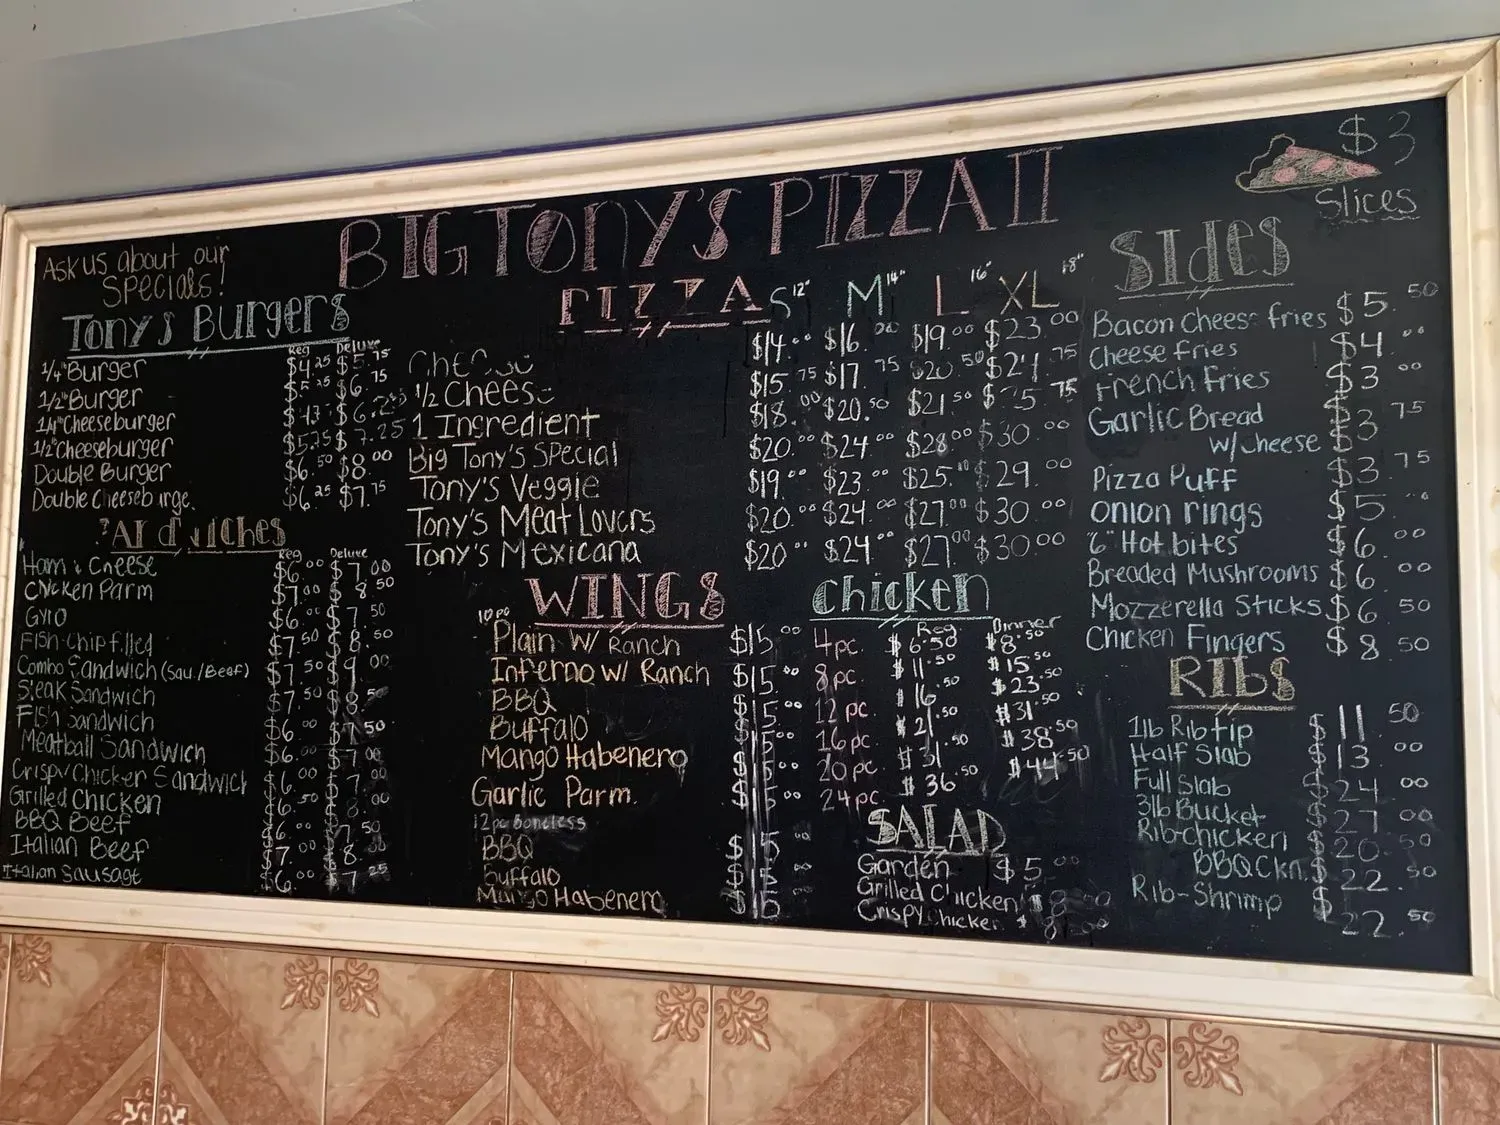 BIG TONY'S PIZZA II
$3
Slices
Ask us about our
Specials!
Tony's Burgers
Reg Deluxe
1/4" Burger $4.25 $5.75
1/2" Burger $5.25 $6.75
1/4" Cheeseburger
1/2" Cheeseburger $7.25
Double Burger $6.50 $8.00
Double Cheeseb rge. $6.25 $7.75
Reg Deluxe
Ham & Cheese $6.00 $7.00
Chicken Parm $7.00 8.50
Gyro $6.00 7.50
Fish-Chip filled $7.50 8.50
Combo Sandwich (Sau./Beef) $7.50 9.00
Steak Sandwich $7.50
Fish Sandwich $6.00 7.50
Meatball Sandwich $6.00 7.00
Crispy Chicken Sandwich $6.00 7.00
Grilled Chicken $6.50 8.00
BBQ Beef $6.00 7.50
Italian Beef $7.00 8.00
Italian Sausage $6.00 7.25
PIZZA S 12" M 14" L 16" XL 18"
Cheese $14.00 $16.00 $19.00 $23.00
1/2 Cheese $15.75 $17.75 $20.50 $24.75
1 Ingredient $18.00 $20.50 $21.50 75
Big Tony's Special $20.00 $24.00 $28.00 $30.00
Tony's Veggie $19.00 $23.00 $25. $29.00
Tony's Meat Lovers $20.00 $24.00 $27.00 $30.00
Tony's Mexicana $20.00 $24.00 $27.00 $30.00
WINGS
10 pc
Plain W/ Ranch $15.00
Inferno w/ Ranch $15.00
BBQ $15.00
Buffalo $15.00
Mango Habenero $15.00
Garlic Parm. $15.00
12pc Boneless
BBQ $15.00
Buffalo $15.00
Mango Habenero $15
Chicken
Reg Dinner
4 pc. $6.50 $8.50
8 pc. $11.50 $15.50
12 pc. $16.50 $23.50
16 pc. $21.50 $31.50
20 pc. $31.50 $38.50
24 pc. $36.50 $44.50
SALAD
Garden $5.00
Grilled Chicken $8.00
Crispy Chicken $8.00
Sides
Bacon Cheese fries $5.50
Cheese fries $4.00
French fries $3.00
Garlic Bread
w/cheese $3.75
Pizza Puff $3.75
Onion rings $5.00
6" Hot bites $6.00
Breaded Mushrooms $6.00
Mozzerella Sticks $6.50
Chicken Fingers $8.50
RIBS
1lb Rib tip $11.50
Half Slab $13.00
Full Slab $24.00
3lb Bucket $27.00
Rib-chicken $20.50
BBQ Ckn. $22.50
Rib-Shrimp $22.50